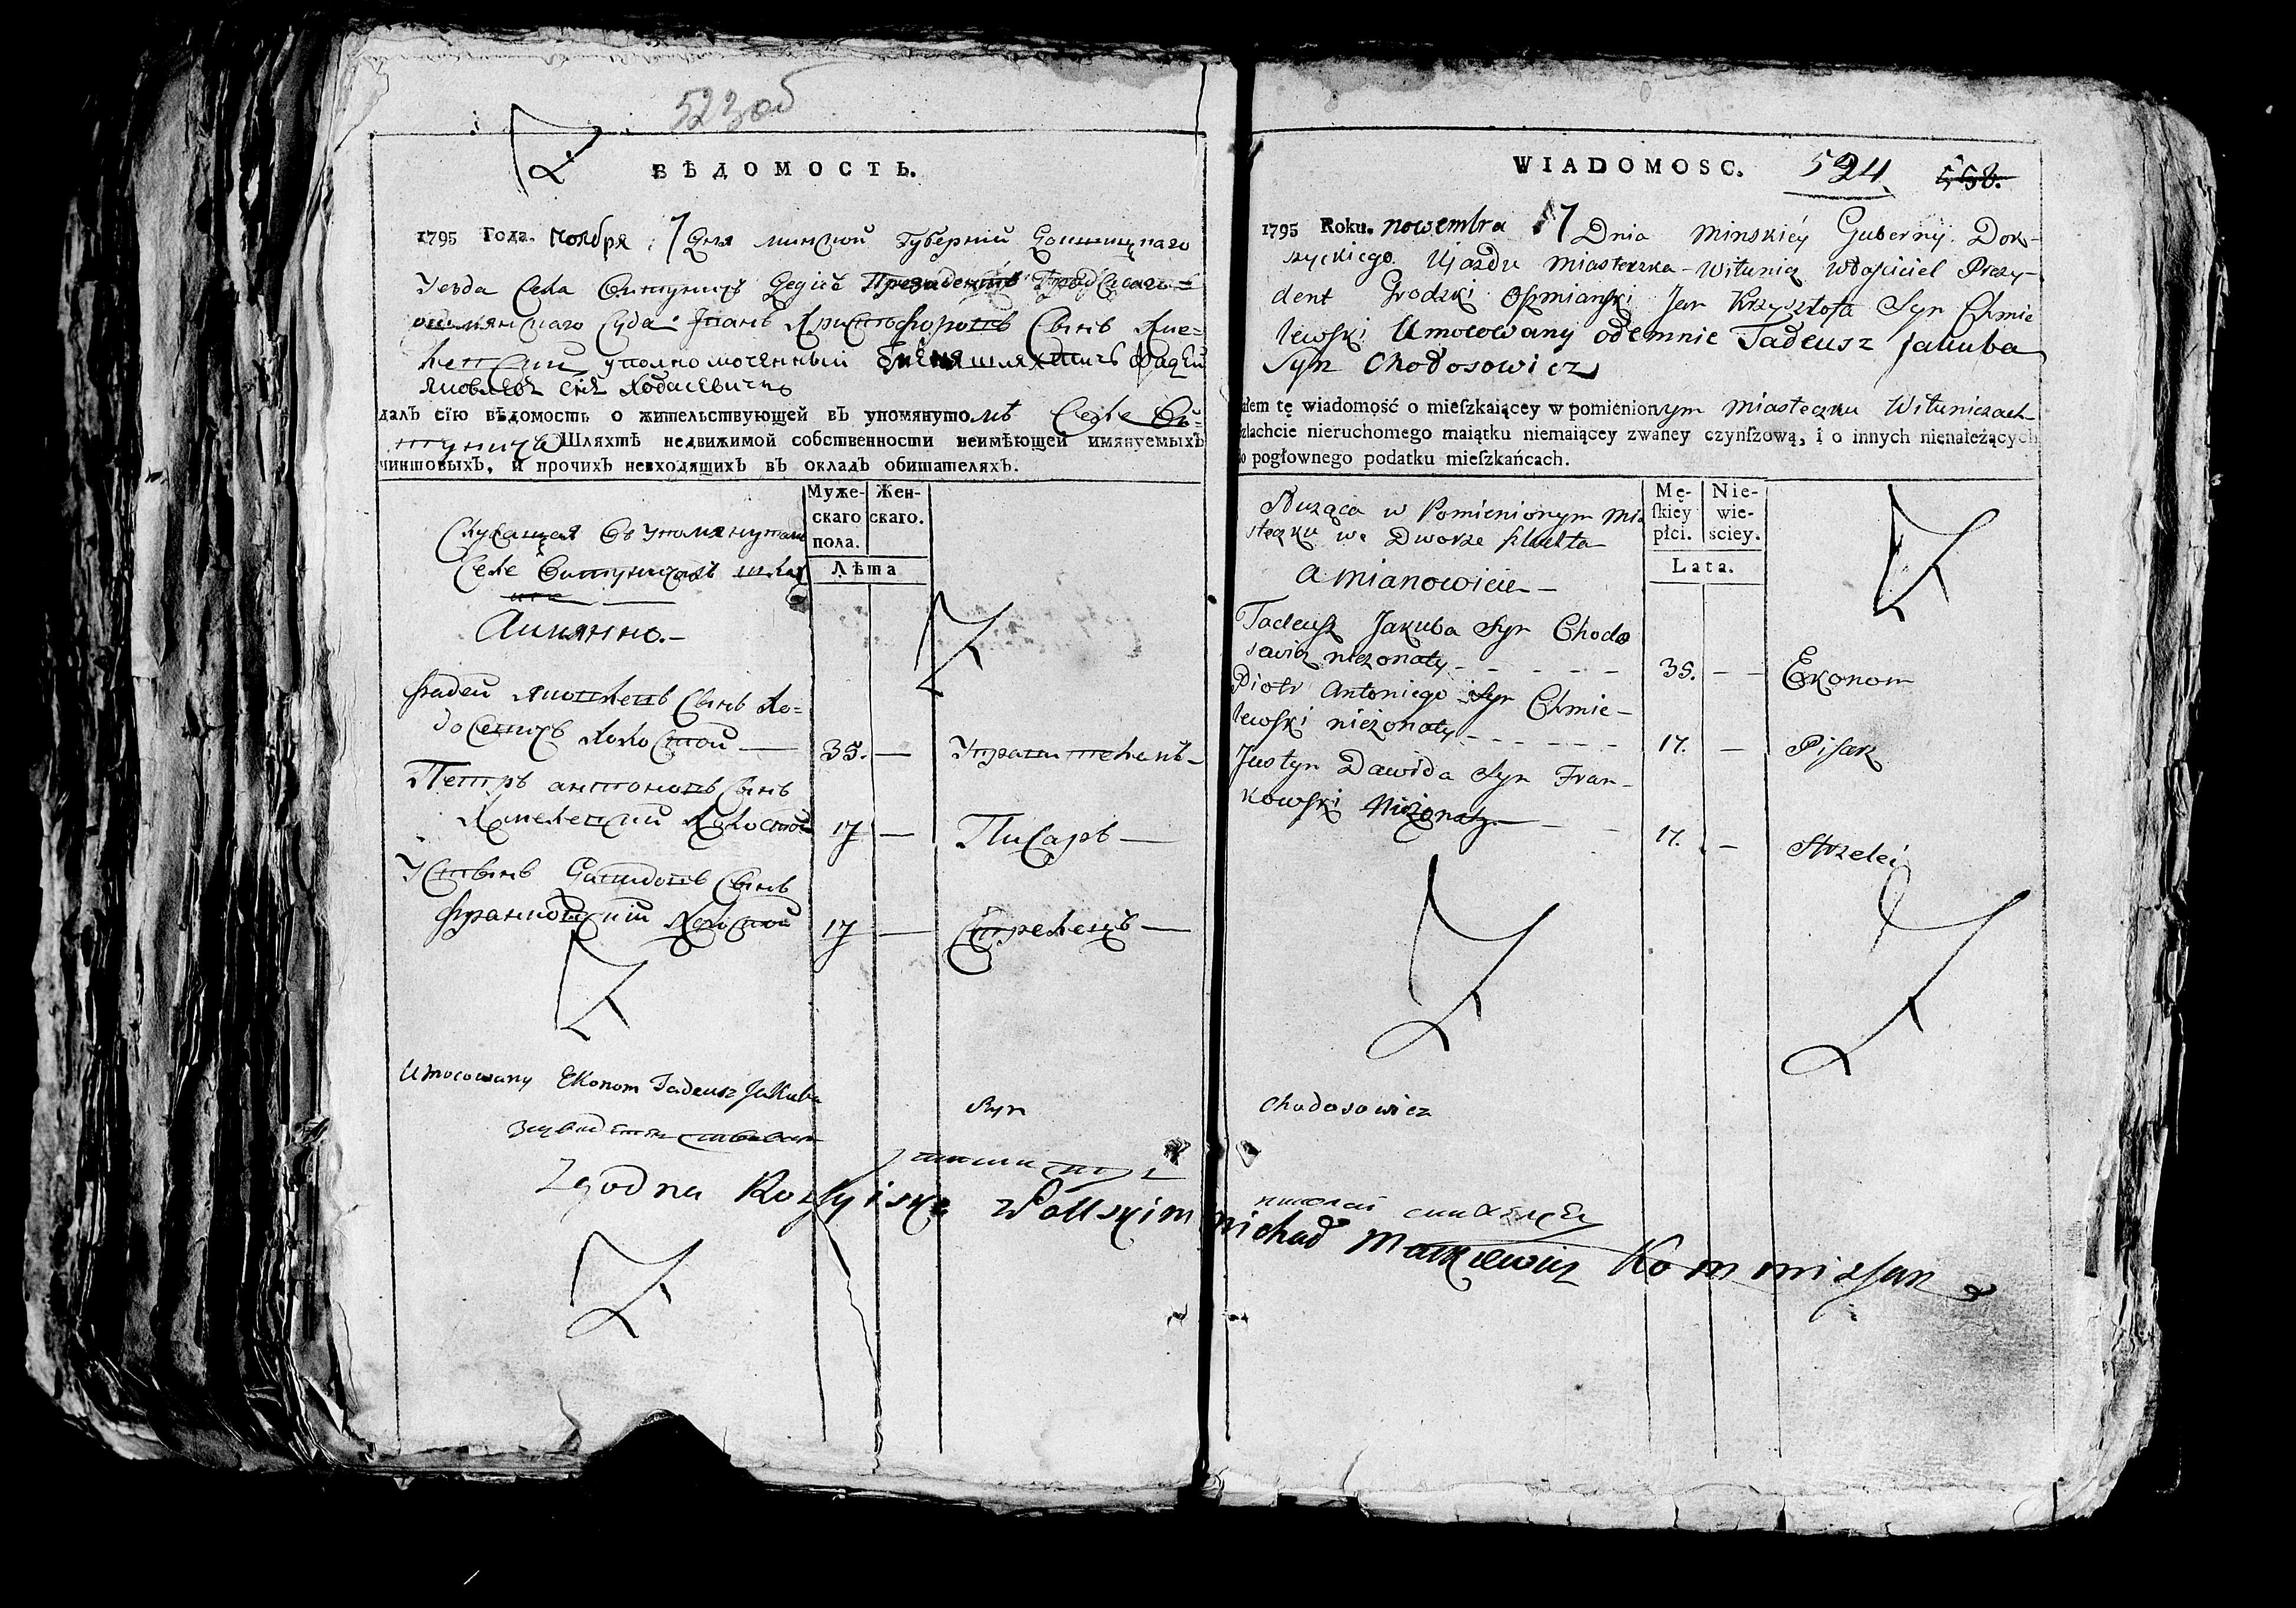 523об
ВѢДОМОСТЬ.
1795 Года. Ноября 17 Дня минской Губерніи Докшицкаго
Уезда Села Витуничъ Дедичъ Президентъ Градскаго
ошмянскаго Суда Иванъ Христофоровъ Сынъ Хме=
левский уполномоченный Фадей
Яковлевъ Снъ Ходасевичъ
далъ сїю вѣдомость о жительствующей въ упомянутомъ Селе Ви=
туничахъ Шляхтѣ недвижимой собственности неимѣющей имянуемыхъ
чиншовыхъ, и прочихъ невходящихъ въ окладъ обитателяхъ.
Муже-скаго пола.
Жен-скаго.
Лѣта
Служащая въ упомянутомъ
Селе Витуничахъ шлях
та
Аимянно.—
Фадей Яковлевъ Сынъ Хо=
досевичъ Холостой — 35. — Управитель—
Петръ антоновъ Сынъ
Хмелевский Холостой 17 — Писарь—
Устынъ Давидовъ Сынъ
Франковский Холостой 17 — Стрелецъ—
Umocowany Ekonom Tadeusz Jakuba Syn Chodosowicz
Zgodna Rossyiska z Polskim Michał Markiewicz Kommissarz
WIADOMOSC. 524 558.
1795 Roku. nowembra 17 Dnia Minskiéy Guberny. Dok-
szyckiego Ujazdu Miasteczka Witunicz włościciel Prezy-
dent Grodzki Oszmianski Jan Krzysztofa Syn Chmie
lewski Umocowany odemnie Tadeusz Jakuba
Syn Chodosowicz
ałem tę wiadomość o mieſzkaiącey w pomienionym Miasteczku Wituniczach
szlachcie nieruchomego maiątku niemaiącey zwaney czynſzową, i o innych nienależących
do pogłownego podatku mieſzkańcach.
Mę-ſkiey płci.
Nie-wie-sciey.
Lata.
Służąca w Pomienionym Mia
steczku we Dworze szlachta
a mianowicie—
Tadeusz Jakuba Syn Chodo
sowicz nieżonaty - - - 35. - - Ekonom
Piotr Antoniego Syn Chmie-
lewski nieżonaty - - - 17. - Pisarz
Justyn Dawida Syn Fran-
kowski Nieżonaty - - 17. - Strzelec